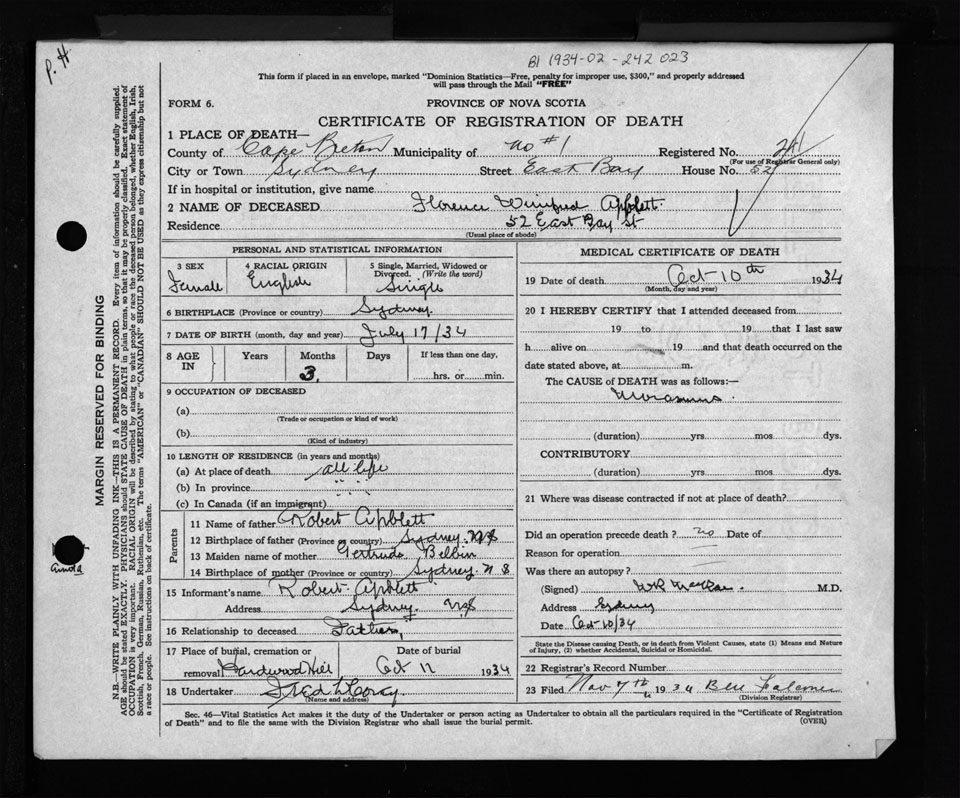 P. H.
B1 1934-02-242 023
This form if placed in an envelope, marked "Dominion Statistics—Free, penalty for improper use, $300," and properly addressed
will pass through the Mail "FREE"
FORM 6.
PROVINCE OF NOVA SCOTIA
CERTIFICATE OF REGISTRATION OF DEATH
1 PLACE OF DEATH—
County of Cape Breton Municipality of No #1 Registered No. 241
(For use of Registrar General only)
City or Town Sydney Street East Bay House No. 52
If in hospital or institution, give name
2 NAME OF DECEASED Florence Winifred Apblett
Residence 52 East Bay St
(Usual place of abode)
PERSONAL AND STATISTICAL INFORMATION
3 SEX 4 RACIAL ORIGIN 5 Single, Married, Widowed or Divorced. (Write the word)
Female English Single
6 BIRTHPLACE (Province or country) Sydney.
7 DATE OF BIRTH (month, day and year) July 17/34
8 AGE IN Years Months Days If less than one day,
3 hrs. or min.
9 OCCUPATION OF DECEASED
(a)
(Trade or occupation or kind of work)
(b)
(Kind of industry)
10 LENGTH OF RESIDENCE (in years and months)
(a) At place of death all life
(b) In province " "
(c) In Canada (if an immigrant)
Parents
11 Name of father Robert Apblett
12 Birthplace of father (Province or country) Sydney. N S
13 Maiden name of mother Gertrude Belbin
14 Birthplace of mother (Province or country) Sydney. N S
15 Informant's name Robert Apblett
Address Sydney. N S
16 Relationship to deceased Father
17 Place of burial, cremation or removal Hardwood Hill Date of burial Oct 11 1934
18 Undertaker
(Name and address)
MEDICAL CERTIFICATE OF DEATH
19 Date of death Oct 10th 1934
(Month, day and year)
20 I HEREBY CERTIFY that I attended deceased from
19 to 19 that I last saw
h alive on 19 and that death occurred on the
date stated above, at m.
The CAUSE of DEATH was as follows:—
Marasmus.
(duration) yrs. mos. dys.
CONTRIBUTORY
(duration) yrs. mos. dys.
21 Where was disease contracted if not at place of death?
Did an operation precede death? no Date of
Reason for operation
Was there an autopsy?
(Signed) M.D.
Address Sydney
Date Oct 10/34
State the Disease causing Death, or in death from Violent Causes, state (1) Means and Nature
of Injury, (2) whether Accidental, Suicidal or Homicidal.
22 Registrar's Record Number
23 Filed Nov 7th 1934
(Division Registrar)
Sec. 46—Vital Statistics Act makes it the duty of the Undertaker or person acting as Undertaker to obtain all the particulars required in the "Certificate of Registration
of Death" and to file the same with the Division Registrar who shall issue the burial permit.
(OVER)
MARGIN RESERVED FOR BINDING
N.B.—WRITE PLAINLY WITH UNFADING INK—THIS IS A PERMANENT RECORD. Every item of information should be carefully supplied.
AGE should be stated EXACTLY. PHYSICIANS should STATE CAUSE OF DEATH in plain terms, so that it may be properly classified. Exact statement of
OCCUPATION is very important. RACIAL ORIGIN will be described by stating to what people or race the deceased person belonged, whether English, Irish,
Scottish, French, German, Russian, Ruthenian, etc. The terms "AMERICAN" or "CANADIAN" SHOULD NOT BE USED as they express citizenship but not
a race or people. See instructions on back of certificate.